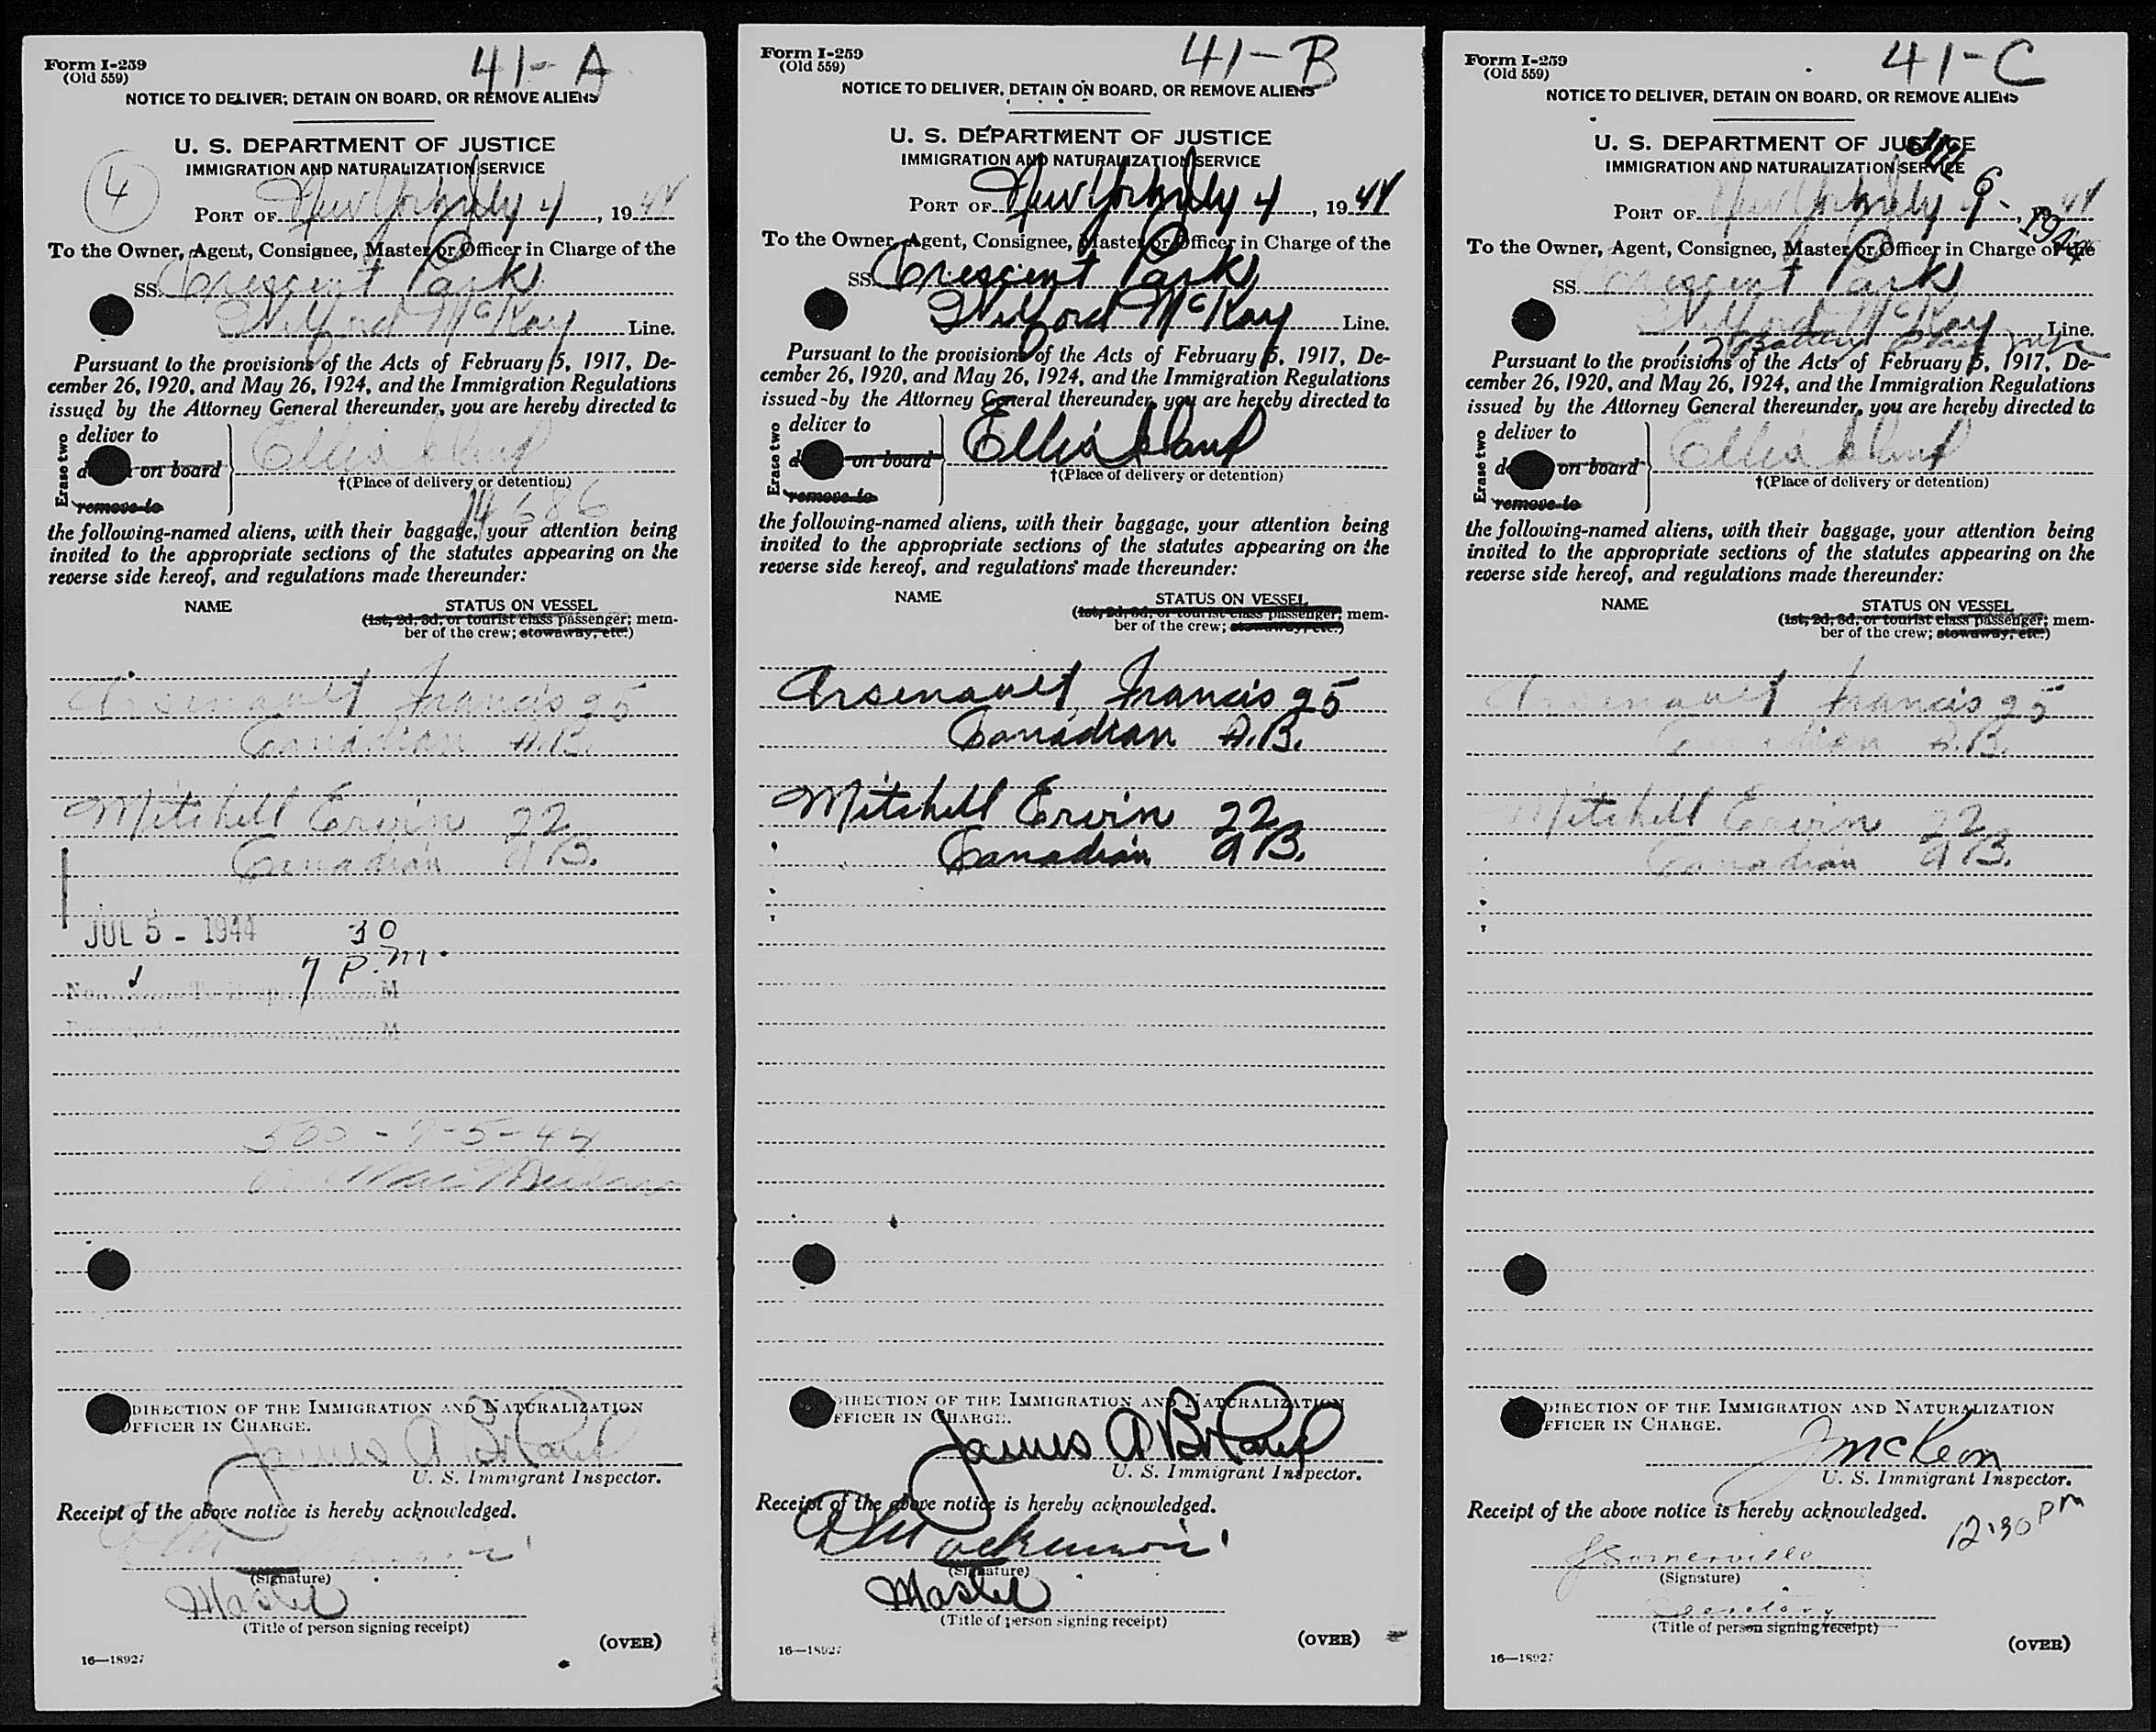 41-A
Form I-259
(Old 559)
NOTICE TO DELIVER, DETAIN ON BOARD, OR REMOVE ALIENS
U. S. DEPARTMENT OF JUSTICE
IMMIGRATION AND NATURALIZATION SERVICE
4
PORT OF New York July 4, 1944
To the Owner, Agent, Consignee, Master or Officer in Charge of the
SS. Crescent Park
McKay Line.
Pursuant to the provisions of the Acts of February 5, 1917, De-
cember 26, 1920, and May 26, 1924, and the Immigration Regulations
issued by the Attorney General thereunder, you are hereby directed to
Erase two
deliver to
on board
Ellis Island
remove to
†(Place of delivery or detention)
14686
the following-named aliens, with their baggage, your attention being
invited to the appropriate sections of the statutes appearing on the
reverse side hereof, and regulations made thereunder:
NAME STATUS ON VESSEL
(1st, 2d, 3d, or tourist class passenger; mem-
ber of the crew; stowaway, etc.)
Arsenault, Francis 25
Canadian A.B.
Mitchell Ervin 22
Canadian AB.
JUL 5 - 1944
30
7 P.m.
No. M
M
500 - 7-5-44
DIRECTION OF THE IMMIGRATION AND NATURALIZATION
OFFICER IN CHARGE.
James A
U. S. Immigrant Inspector.
Receipt of the above notice is hereby acknowledged.
(Signature)
Master
(Title of person signing receipt)
(OVER)
16—18927
41-B
Form I-259
(Old 559)
NOTICE TO DELIVER, DETAIN ON BOARD, OR REMOVE ALIENS
U. S. DEPARTMENT OF JUSTICE
IMMIGRATION AND NATURALIZATION SERVICE
PORT OF New York July 4, 1944
To the Owner, Agent, Consignee, Master or Officer in Charge of the
SS. Crescent Park
McKay Line.
Pursuant to the provisions of the Acts of February 5, 1917, De-
cember 26, 1920, and May 26, 1924, and the Immigration Regulations
issued by the Attorney General thereunder, you are hereby directed to
Erase two
deliver to
on board
Ellis Island
remove to
†(Place of delivery or detention)
the following-named aliens, with their baggage, your attention being
invited to the appropriate sections of the statutes appearing on the
reverse side hereof, and regulations made thereunder:
NAME STATUS ON VESSEL
(1st, 2d, 3d, or tourist class passenger; mem-
ber of the crew; stowaway, etc.)
Arsenault, Francis 25
Canadian A.B.
Mitchell Ervin 22
Canadian AB.
DIRECTION OF THE IMMIGRATION AND NATURALIZATION
OFFICER IN CHARGE.
James A
U. S. Immigrant Inspector.
Receipt of the above notice is hereby acknowledged.
(Signature)
Master
(Title of person signing receipt)
(OVER)
16—18927
41-C
Form I-259
(Old 559)
NOTICE TO DELIVER, DETAIN ON BOARD, OR REMOVE ALIENS
U. S. DEPARTMENT OF JUSTICE
IMMIGRATION AND NATURALIZATION SERVICE
6
PORT OF New York July , 1944
1944
To the Owner, Agent, Consignee, Master or Officer in Charge of the
SS. Crescent Park
McKay Line.
Battery
Pursuant to the provisions of the Acts of February 5, 1917, De-
cember 26, 1920, and May 26, 1924, and the Immigration Regulations
issued by the Attorney General thereunder, you are hereby directed to
Erase two
deliver to
on board
Ellis Island
remove to
†(Place of delivery or detention)
the following-named aliens, with their baggage, your attention being
invited to the appropriate sections of the statutes appearing on the
reverse side hereof, and regulations made thereunder:
NAME STATUS ON VESSEL
(1st, 2d, 3d, or tourist class passenger; mem-
ber of the crew; stowaway, etc.)
Arsenault, Francis 25
Canadian A.B.
Mitchell Ervin 22
Canadian AB.
DIRECTION OF THE IMMIGRATION AND NATURALIZATION
OFFICER IN CHARGE.
J McKeon
U. S. Immigrant Inspector.
Receipt of the above notice is hereby acknowledged.
12:30 PM
J Somerville
(Signature)
Secretary
(Title of person signing receipt)
(OVER)
16—18927